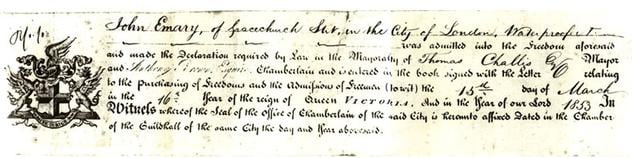 John Emary, of Gracechurch Stt, in the City of London, Waterproofer
was admitted into the Freedom aforesaid
and made the Declaration required by Law in the Mayoralty of Thomas Challis Esq Mayor
and Anthony Brown Esquire Chamberlain and is entered in the book signed with the Letter relating
to the Purchasing of Freedoms and the Admissions of Freemen (to wit) the 15th day of March
in the 16th Year of the reign of Queen VICTORIA, And in the Year of our Lord 1853 In
Witness whereof the Seal of the Office of Chamberlain of the said City is hereunto affixed Dated in the Chamber
of the Guildhall of the same City the day and Year abovesaid.